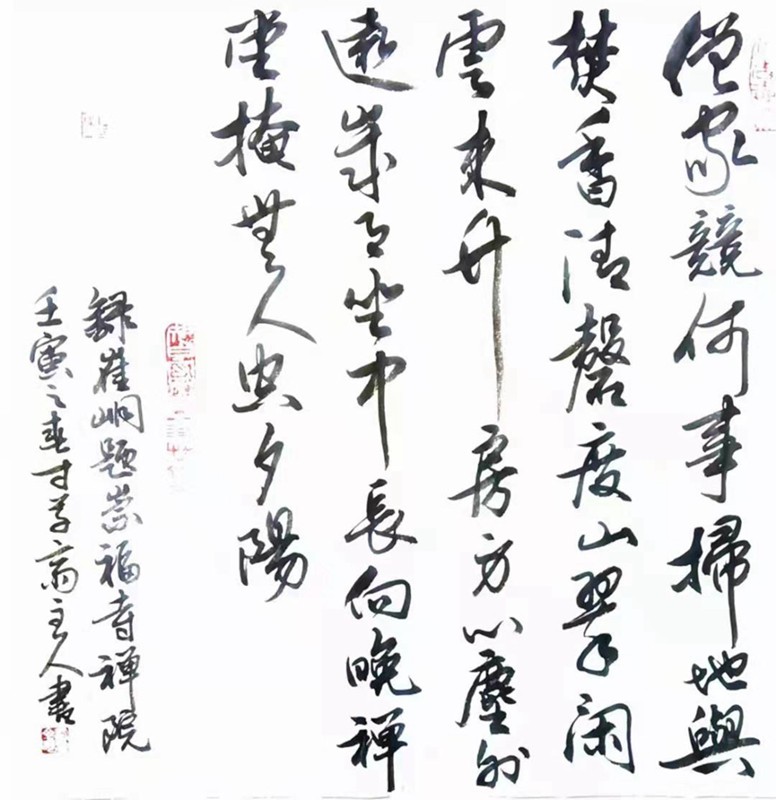 僧家競何事掃地與
焚香清磬度山翠閑
雲来竹房身心塵外
遠歲月坐中長向晚禅
堂掩無人空夕陽
錄崔峒題崇福寺禅院
壬寅之春寸草齋主人書